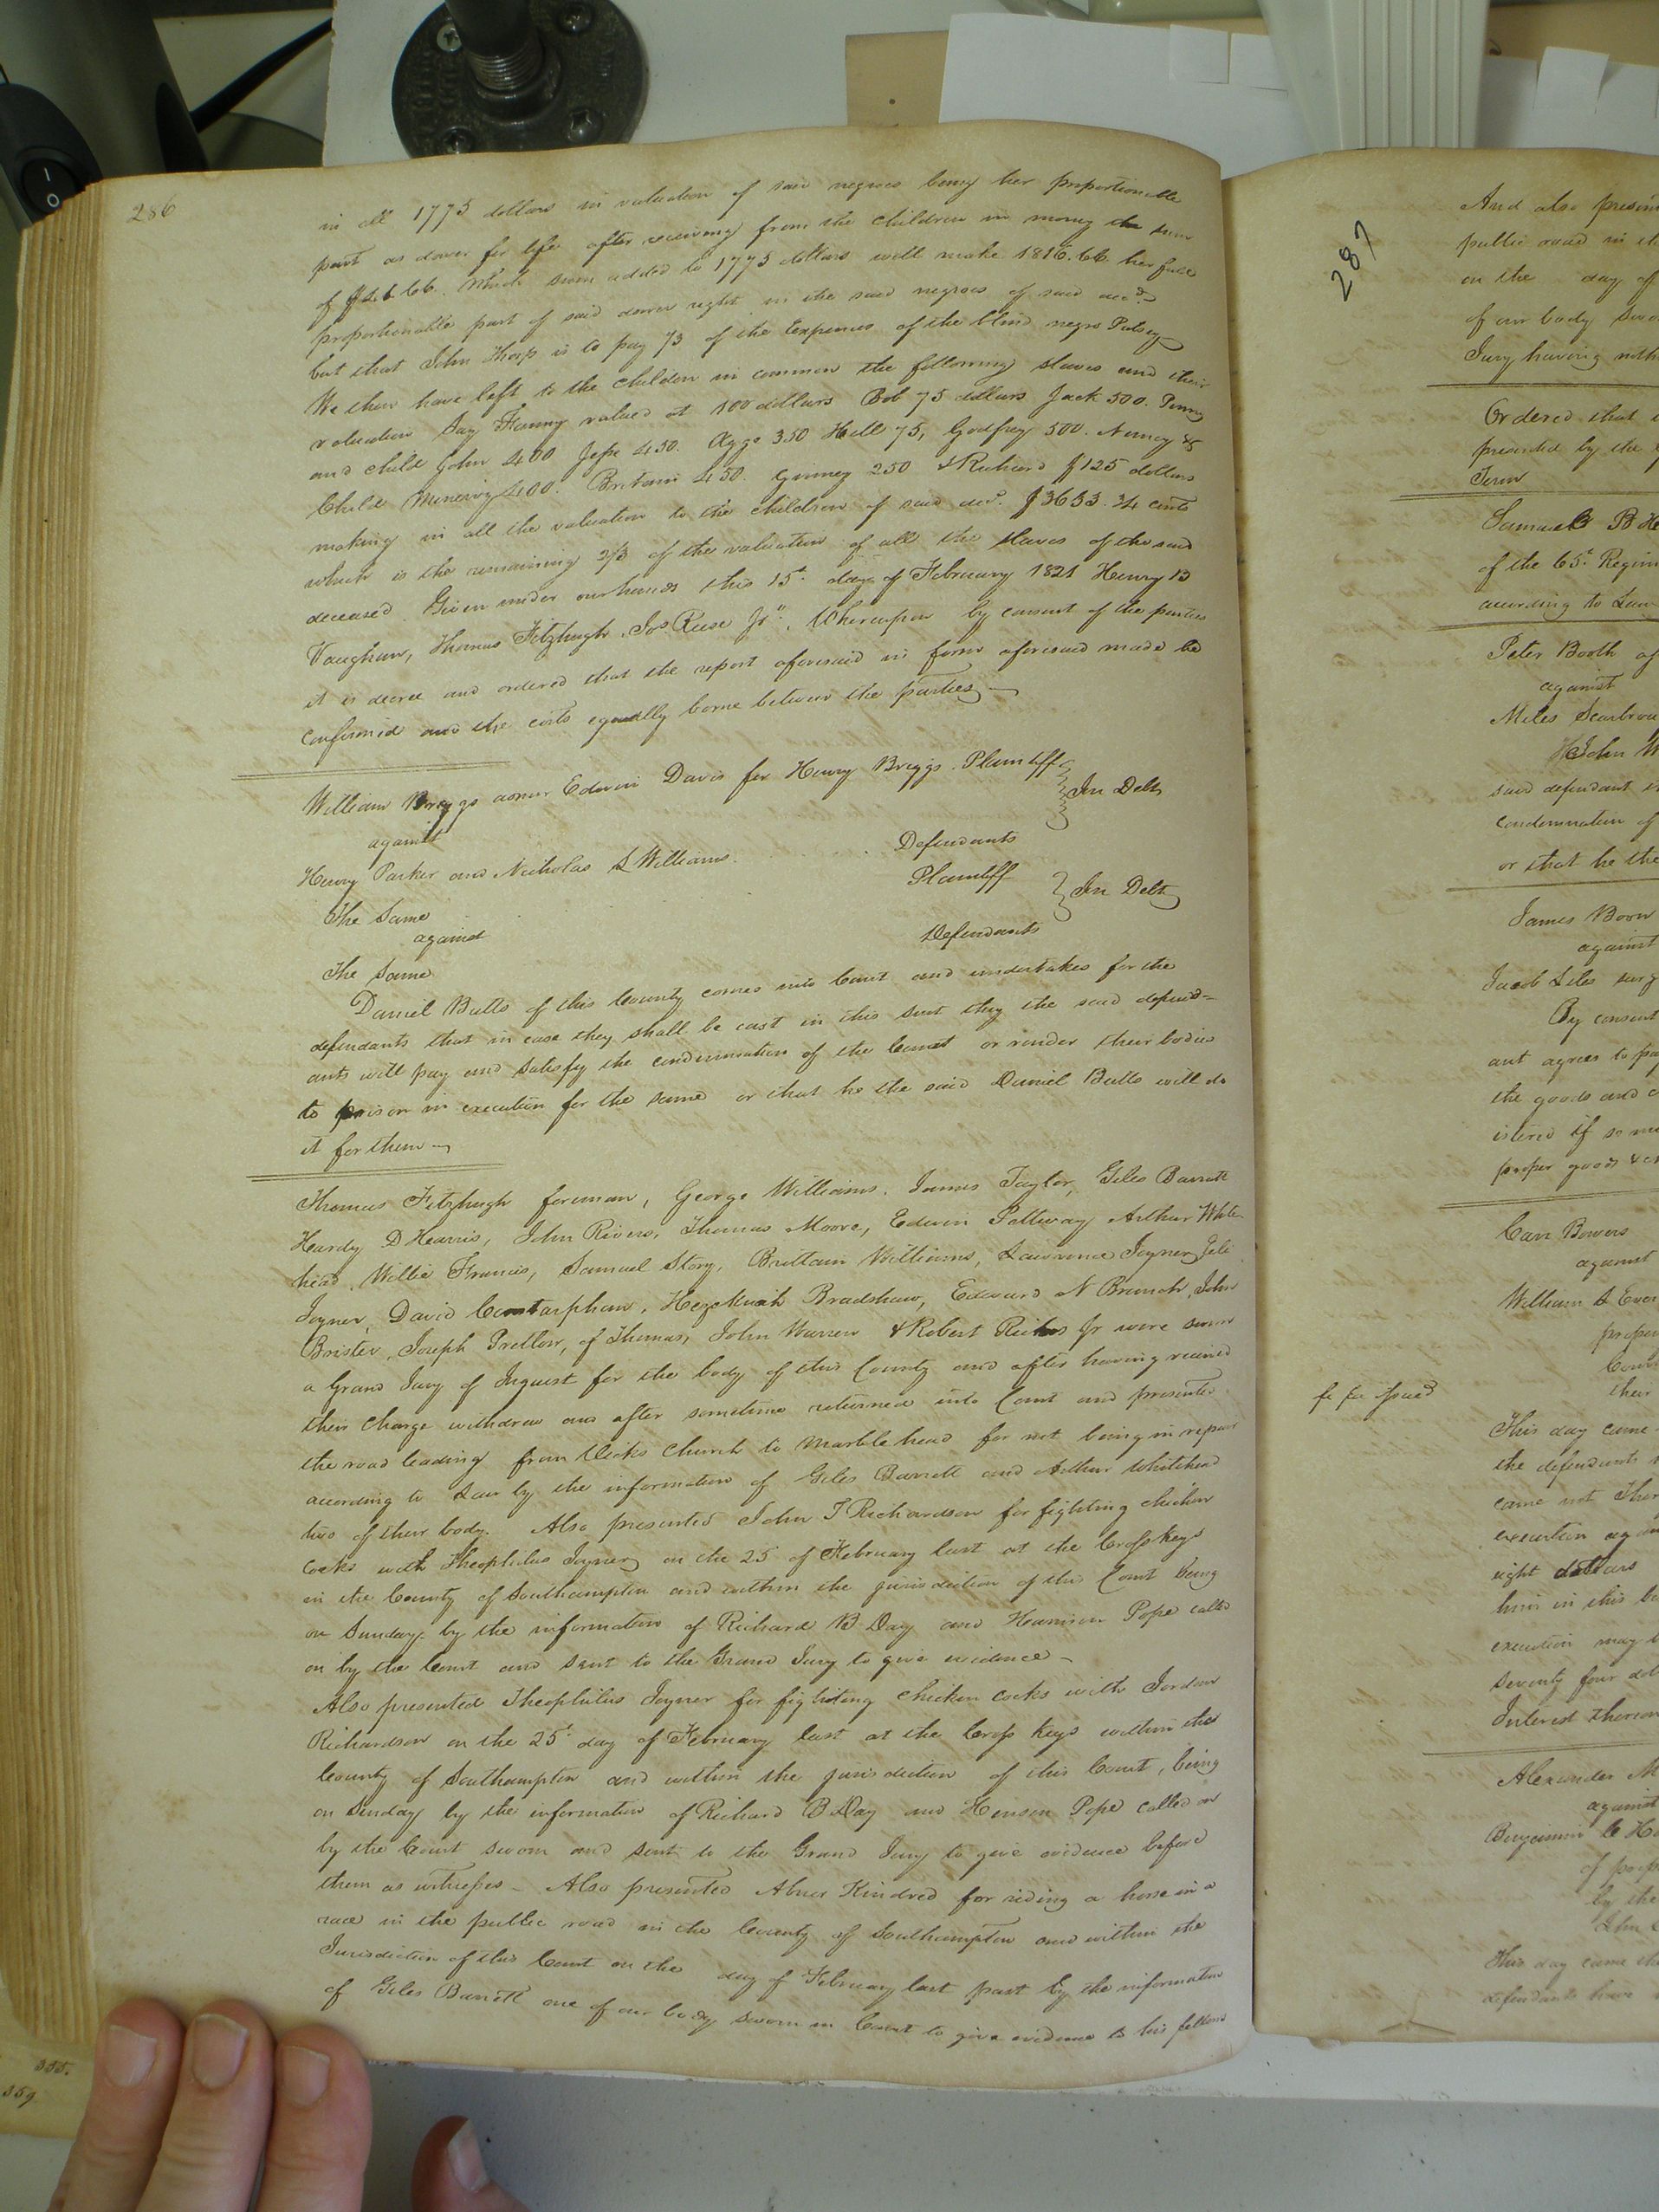 286
in all 1775 dollars in valuation of said negroes being her proportionable
part as dower for life after receiving from the children in money the sum
of $41.66. Which sum added to 1775 dollars will make 1816.66 her full
proportionable part of said dower right in the said negroes of said decd.
but that John Thorp is to pay 1/3 of the Expenses of the blind negro Patsey
We then have left to the children in common the following slaves and their
valuation Say Fanny valued at 100 dollars Bob 75 dollars Jack 500. Penny
and child John 400 Jesse 450. Aggs 350 Hell 75, Godfrey 500. Nancy &
Child Minerving 400. Britain 450. Gurney 250 & Richard $125 dollars
making in all the valuation to the children of said decd. $3633. 3/4 cents
which is the remaining 2/3 of the valuation of all the slaves of the said
deceased. Given under our hands this 15t. day of February 1821 Henry B
Vaughan, Thomas Fitzhugh, Jos Reese Jr., Whereupon by consent of the parties
it is decree and ordered that the report aforesaid in form aforesaid made be
confirmed and the costs equally borne between the parties
William Briggs assnee Edwin Davis for Henry Briggs. Plaintiff
In Debt
against
Henry Parker and Nicholas L Williams. Defendants
The Same Plaintiff
In Debt
against
The Same Defendants
Daniel Butts of this County comes into Court and undertakes for the
defendants that in case they shall be cast in this suit they the said defend=
ants will pay and satisfy the condemnation of the Court or render their bodies
to prison in execution for the same or that he the said Daniel Butts will do
it for them
Thomas Fitzhugh foreman, George Williams. James Taylor, Giles Barrett
Hardy D Hearris, John Rivers, Thomas Moore, Edwin Pettway Arthur White
head, Willie Francis, Samuel Story, Brittain Williams, Lawrence Joyner, Jele
Joyner, David Hezekiah Bradshaw, Edward N Branch, John
Brister, Joseph Pretlow, of Thomas, John Warren & Robert Ricks Jr were sworn
a Grand Jury of Inquest for the body of this County and after having received
their charge withdrew and after sometime returned into Court and presented
the road leading from Vicks Church to Marblehead for not being in repair
according to Law by the information of Giles Barrett and Arthur Whitehead
two of their body. Also presented John T Richardson for fighting chicken
cocks with Theophilus Joyner on the 25 of February last at the Cross keys
in the County of Southampton and within the jurisdiction of this Court being
on Sunday. by the information of Richard B Day and Harrison Pope called
on by the Court and sent to the Grand Jury to give evidence -
Also presented Theophilus Joyner for fighting chicken cocks with Jordan
Richardson on the 25t day of February last at the Cross keys within the
County of Southampton and within the jurisdiction of this Court, being
on Sunday by the information of Richard B Day and Henson Pope called on
by the Court sworn and sent to the Grand Jury to give evidence before
them as witnesses - Also presented Abner Kindred for riding a horse in a
race in the public road in the County of Southampton and within the
Jurisdiction of this Court on the day of February last past by the information
of Giles Barrett one of our body sworn in Court to give evidence to his fellow
287
And also presen
public road in th
on the day of
of our body swor
Jury having noth
Ordered that
presented by the
Term
Samuel B He
of the 65t. Regim
according to Law
Peter Booth
against
Miles Scarbrou
John W
said defendant
condemnation of
or that he the
James Boon
against
Jacob Liles surg
By consent
ant agrees to pa
the goods and c
istered if so mu
proper goods & c
Carr Bowers
against
William L Ever
proper
their
fi fa issued
This day came
the defendants
came not Ther
execution again
eight dollars
him in this be
execution may
seventy four dol
Interest thereon
Alexander M
against
Benjamin C Ho
by the
John
This day came th
defendants have
355.
359